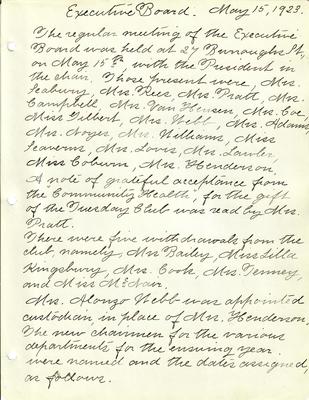 Executive Board. May 15, 1923.
The regular meeting of the Executive
Board was held at 27 Burroughs St,
on May 15th, with the President in
the chair. Those present were, Mrs.
Seabury, Mrs. Rees, Mrs. Pratt, Mrs.
Campbell, Mrs. Van Heusen, Mrs. Coe,
Miss Gilbert, Mrs. Webb, Mrs. Adams,
Mrs. Noyes, Mrs. Williams, Miss
Seaverns, Mrs. Mrs.
Miss Coburn, Mrs. Henderson,
A note of grateful acceptance from
the "Community Health", for the gift
of the Tuesday Club was read by Mrs.
Pratt.
There were five withdrawals from the
club, namely, Mrs Bailey, Miss Lilla
Kingsbury, Mrs. Cook, Mrs. Tenney,
and Miss McNair.
Mrs. Alonzo Webb was appointed
custodian, in place of Mrs. Henderson.
The new chairmen for the various
departments for the ensuing year
were named and the dates assigned,
as follows.